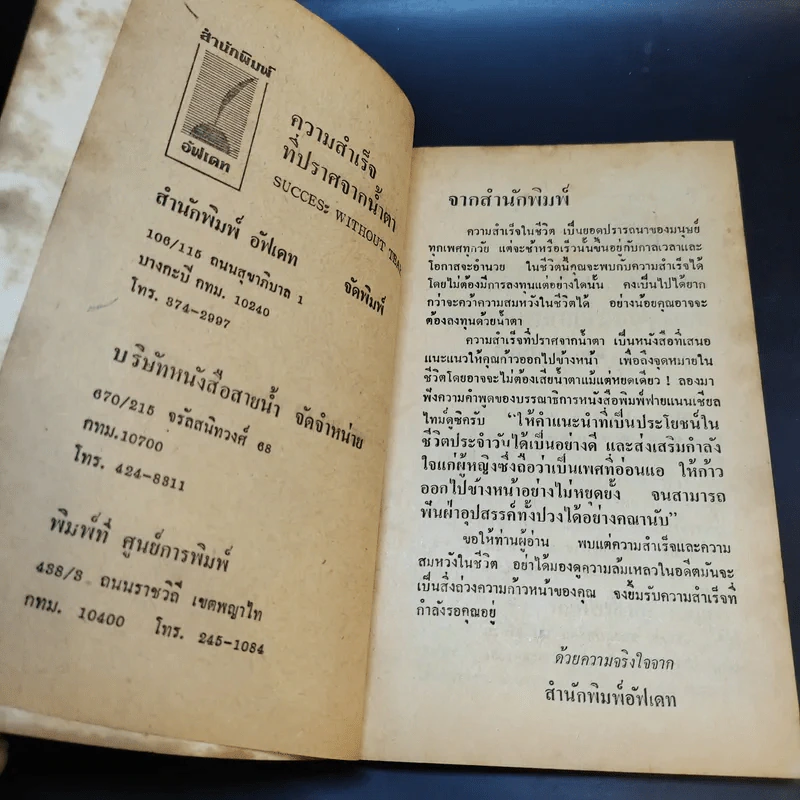 สำนักพิมพ์
อัฟเดท
ความสำเร็จ
ที่ปราศจากน้ำตา
SUCCESS WITHOUT
สำนักพิมพ์ อัฟเดท จัดพิมพ์
106/115 ถนนสุขาภิบาล 1
บางกะปี กทม. 10240
โทร. 374-2997
บริษัทหนังสือสายน้ำ จัดจำหน่าย
670/215 จรัลสนิทวงศ์ 68
กทม.10700
โทร. 424-8311
พิมพ์ที่ ศูนย์การพิมพ์
438/3 ถนนราชวิถี เขตพญาไท
กทม. 10400 โทร. 245-1084
จากสำนักพิมพ์
ความสำเร็จในชีวิต เป็นยอดปรารถนาของมนุษย์
ทุกเพศทุกวัย แต่จะช้าหรือเร็วนั้นขึ้นอยู่กับกาลเวลาและ
โอกาสจะอำนวย ในชีวิตนี้คุณจะพบกับความสำเร็จได้
โดยไม่ต้องมีการลงทุนแต่อย่างใดนั้น คงเป็นไปได้ยาก
กว่าจะคว้าความสมหวังในชีวิตได้ อย่างน้อยคุณอาจจะ
ต้องลงทุนด้วยน้ำตา
ความสำเร็จที่ปราศจากน้ำตา เป็นหนังสือที่เสนอ
แนะแนวให้คุณก้าวออกไปข้างหน้า เพื่อถึงจุดหมายใน
ชีวิตโดยอาจจะไม่ต้องเสียน้ำตาแม้แต่หยดเดียว ! ลองมา
ฟังความคำพูดของบรรณาธิการหนังสือพิมพ์ฟายแนนเชียล
ไทม์ดูซิครับ “ให้คำแนะนำที่เป็นประโยชน์ใน
ชีวิตประจำวันได้เป็นอย่างดี และส่งเสริมกำลัง
ใจแก่ผู้หญิงซึ่งถือว่าเป็นเพศที่อ่อนแอ ให้ก้าว
ออกไปข้างหน้าอย่างไม่หยุดยั้ง จนสามารถ
ฟันฝ่าอุปสรรค์ทั้งปวงได้อย่างคณานับ”
ขอให้ท่านผู้อ่าน พบแต่ความสำเร็จและความ
สมหวังในชีวิต อย่าได้มองดูความล้มเหลวในอดีตมันจะ
เป็นสิ่งถ่วงความก้าวหน้าของคุณ จงยิ้มรับความสำเร็จที่
กำลังรอคุณอยู่
ด้วยความจริงใจจาก
สำนักพิมพ์อัฟเดท